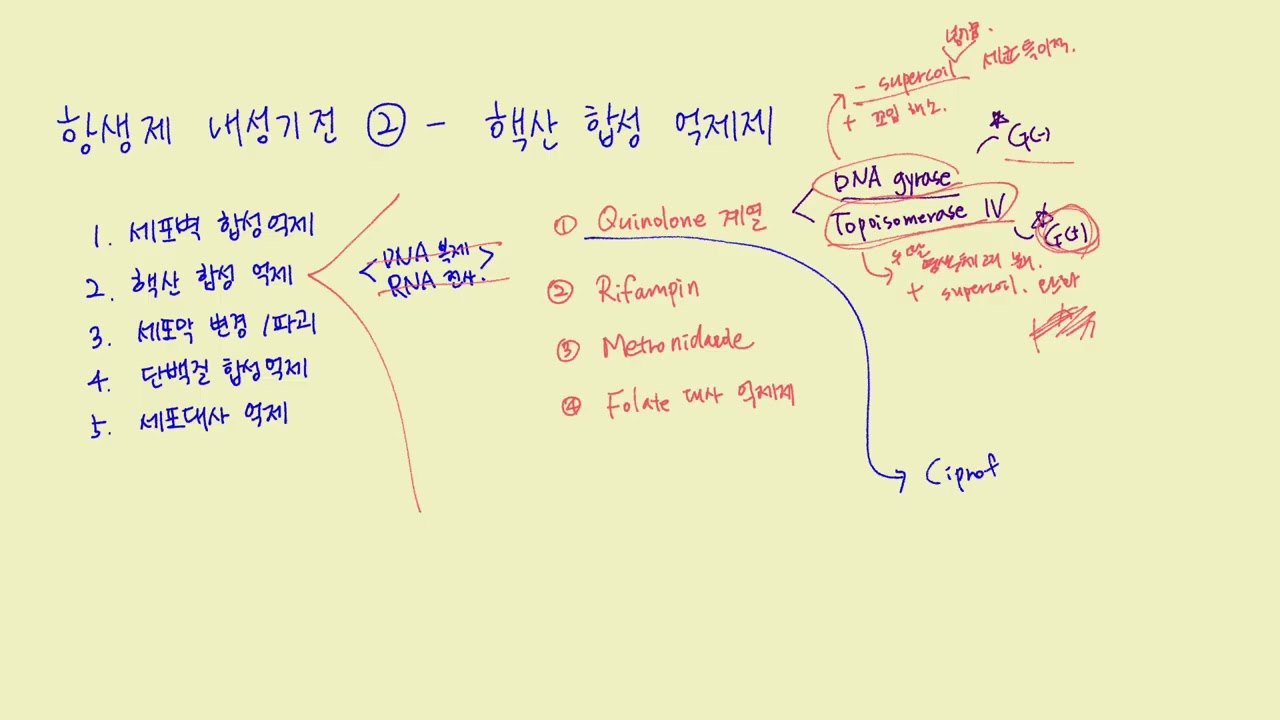 항생제 내성기전 ② - 핵산 합성 억제제
1. 세포벽 합성억제
2. 핵산 합성 억제
3. 세포막 변경 / 파괴
4. 단백질 합성억제
5. 세포대사 억제
DNA 복제
RNA 전사.
① Quinolone 계열
② Rifampin
③ Metronidazole
④ Folate 대사 억제제
- supercoil 세균 특이적.
+ 꼬임 해소.
DNA gyrase
G(-)
Topoisomerase IV
G(+)
+ supercoil.
Ciprof